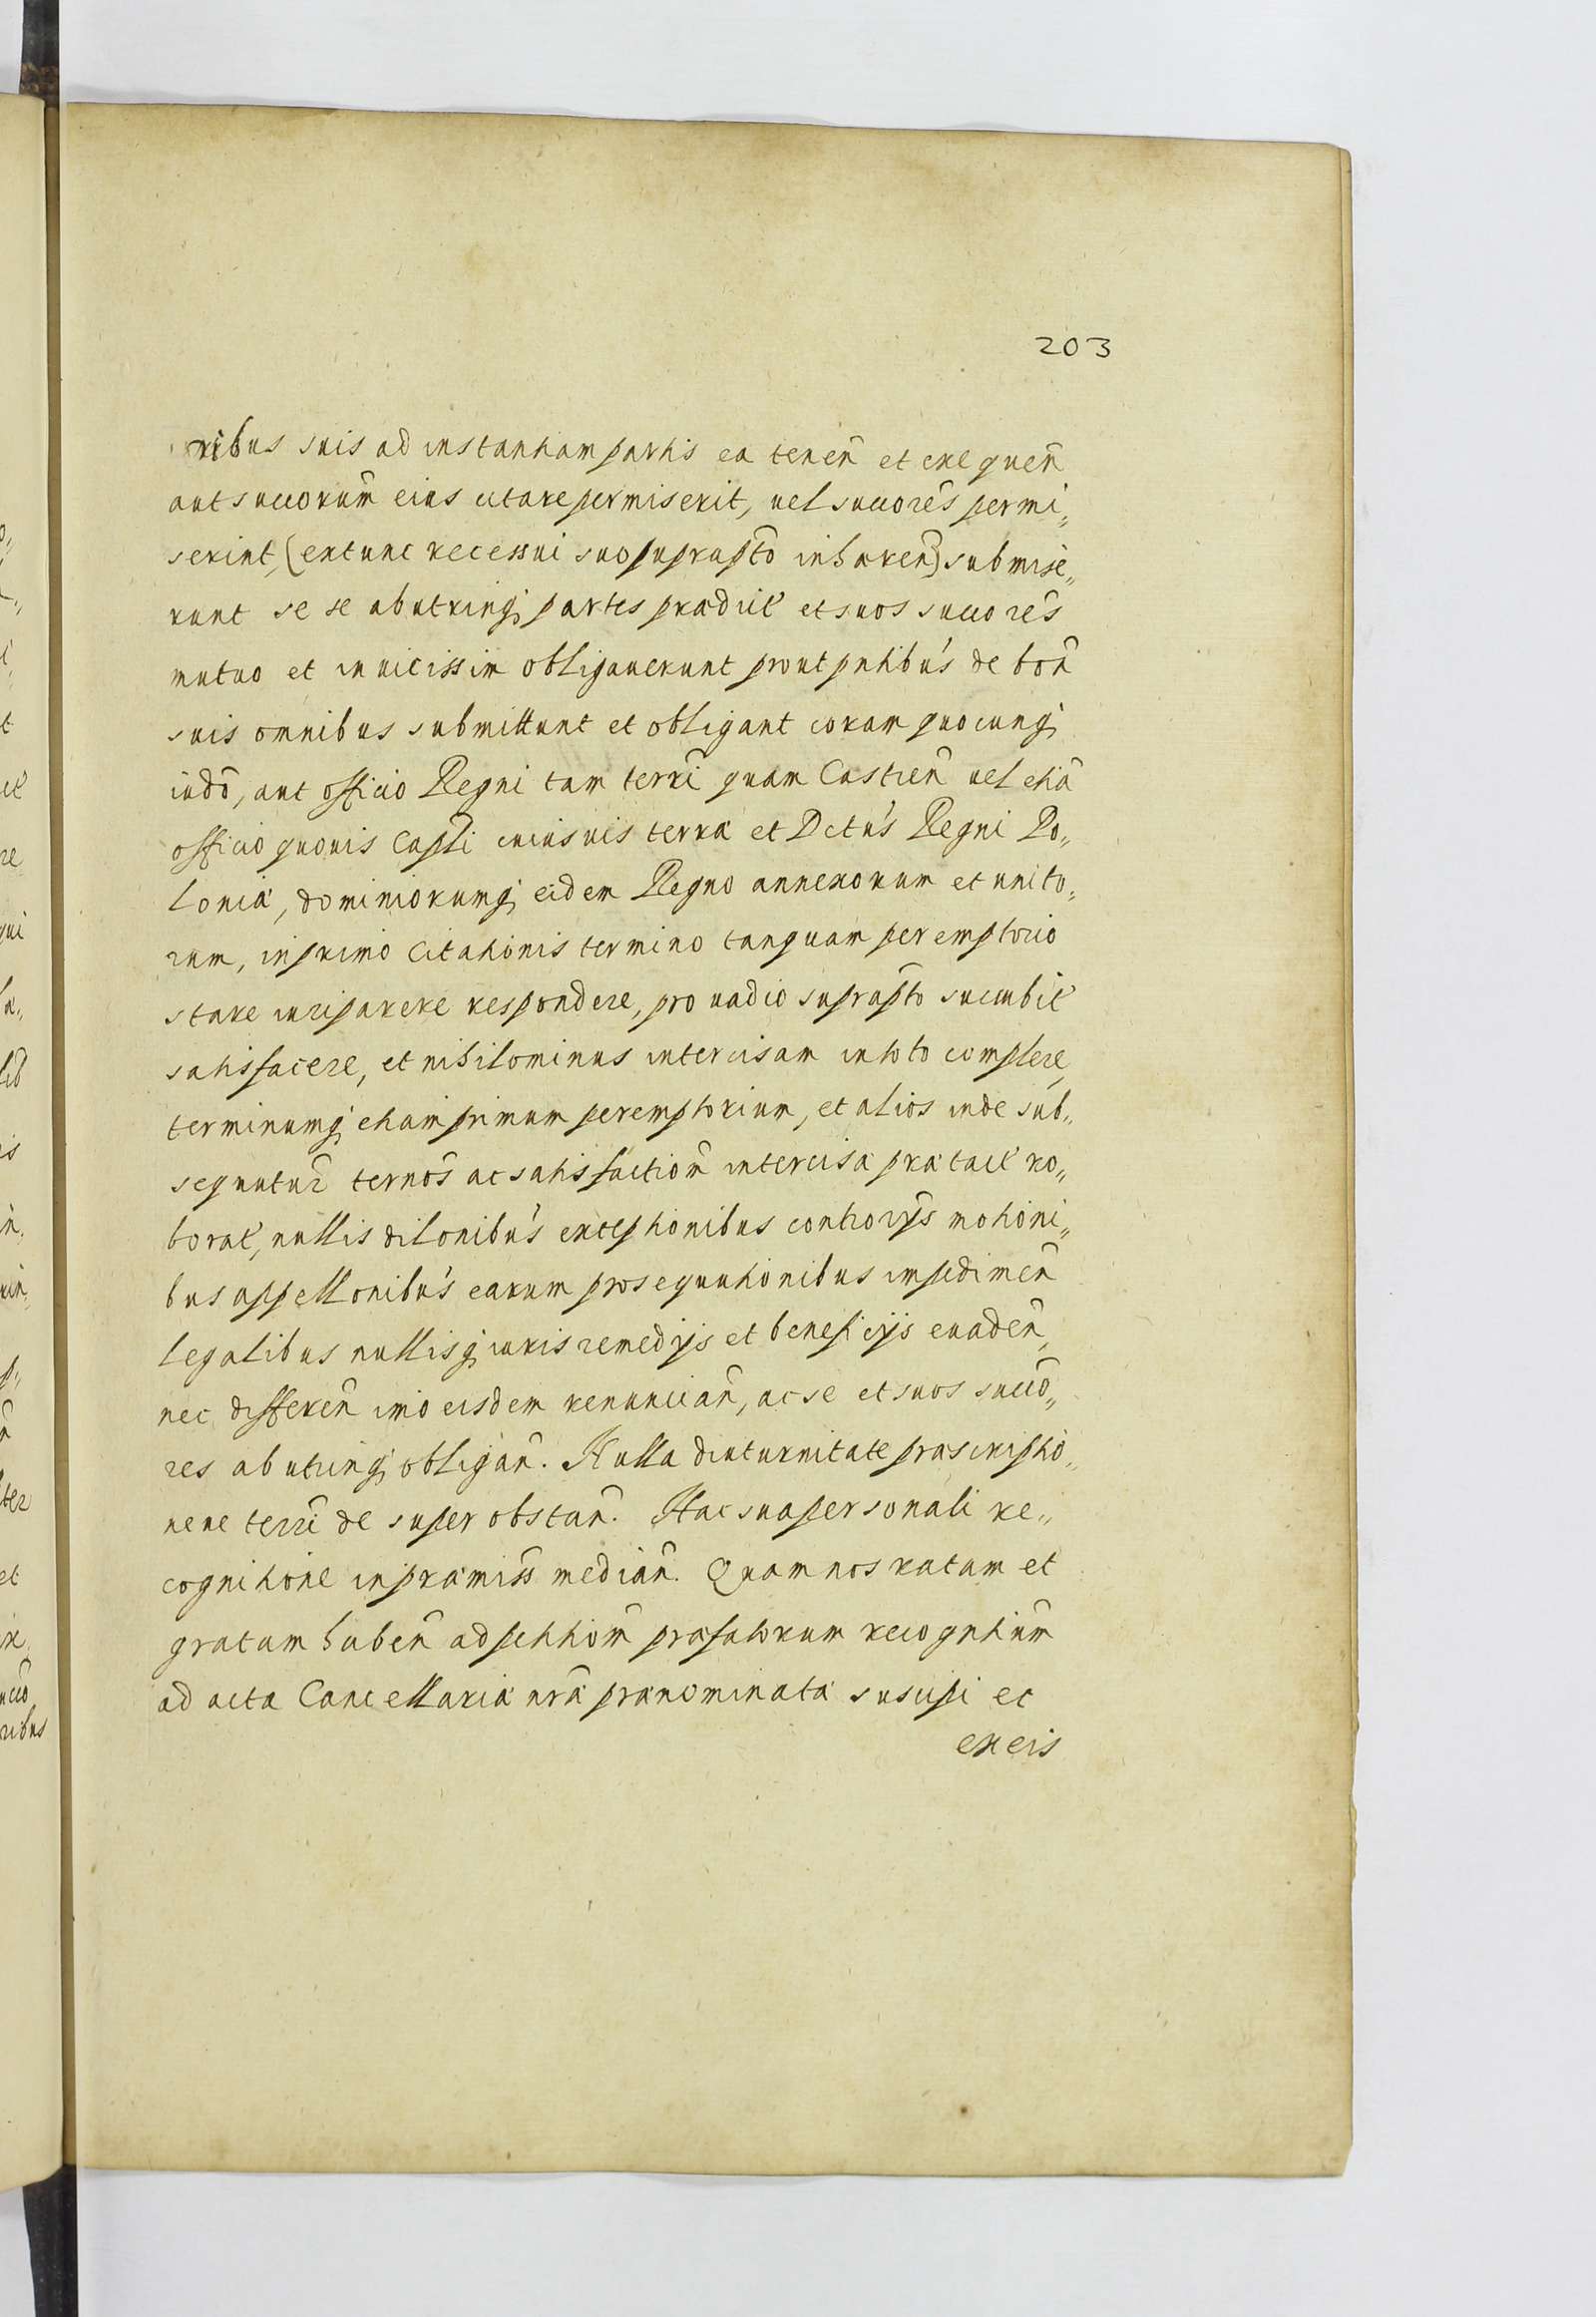 203
ribus suis ad instantiam partis ea teneñ et exequeñ
aut succorum̃ eius citare permiserit, uel succorẽs permi„
serint, (extunc recessui suo suprapt̃o inhæreñ) submise„
runt se se ab utrinq; partes prædict̃ et suos succorẽs
mutuo et in uicissim obligauerunt prout pntibũs de boñ
suis omnibus submittunt et obligant coram quocunq;
iudõ, aut officio Regni tam terr̃i quam Castreñ uel etiã
officio quouis Capt̃li cuiusuis terræ et Dctũs Regni Po„
loniæ, dominiorumq; eidem Regno annexorum et unito„
rum, in primo Citationis termino tanquam peremptorio
stare iuri parere respondere, pro uadio suprapt̃o succubit̃
satisfacere, et nihilominus intercisam in toto complere,
terminumq; etiam primum peremptorium, et alios inde sub„
sequutur̃ terños ac satisfactiom̃ intercisæ prætact̃ ro„
borat̃, nullis dilonibũs exceptionibus controrijs motioni„
bus appellonibũs earum prosequutionibus impedimeñ
legalibus nullisq; iuris remedijs et beneficijs euadeñ,
nec differeñ imo eisdem renunciañ, ac se et suos succõ„
res ab utrinq; obligañ. Nulla diuturnitate præscriptio„
neue terr̃i de super obstañ. Hac sua personali re„
cognitione in præmiss̃ mediañ. Quam nos ratam et
gratam habeñ ad petitiom̃ præfatorum recogntium̃
ad acta Cancellariæ nr̃æ prænominatæ suscipi et
ex eis